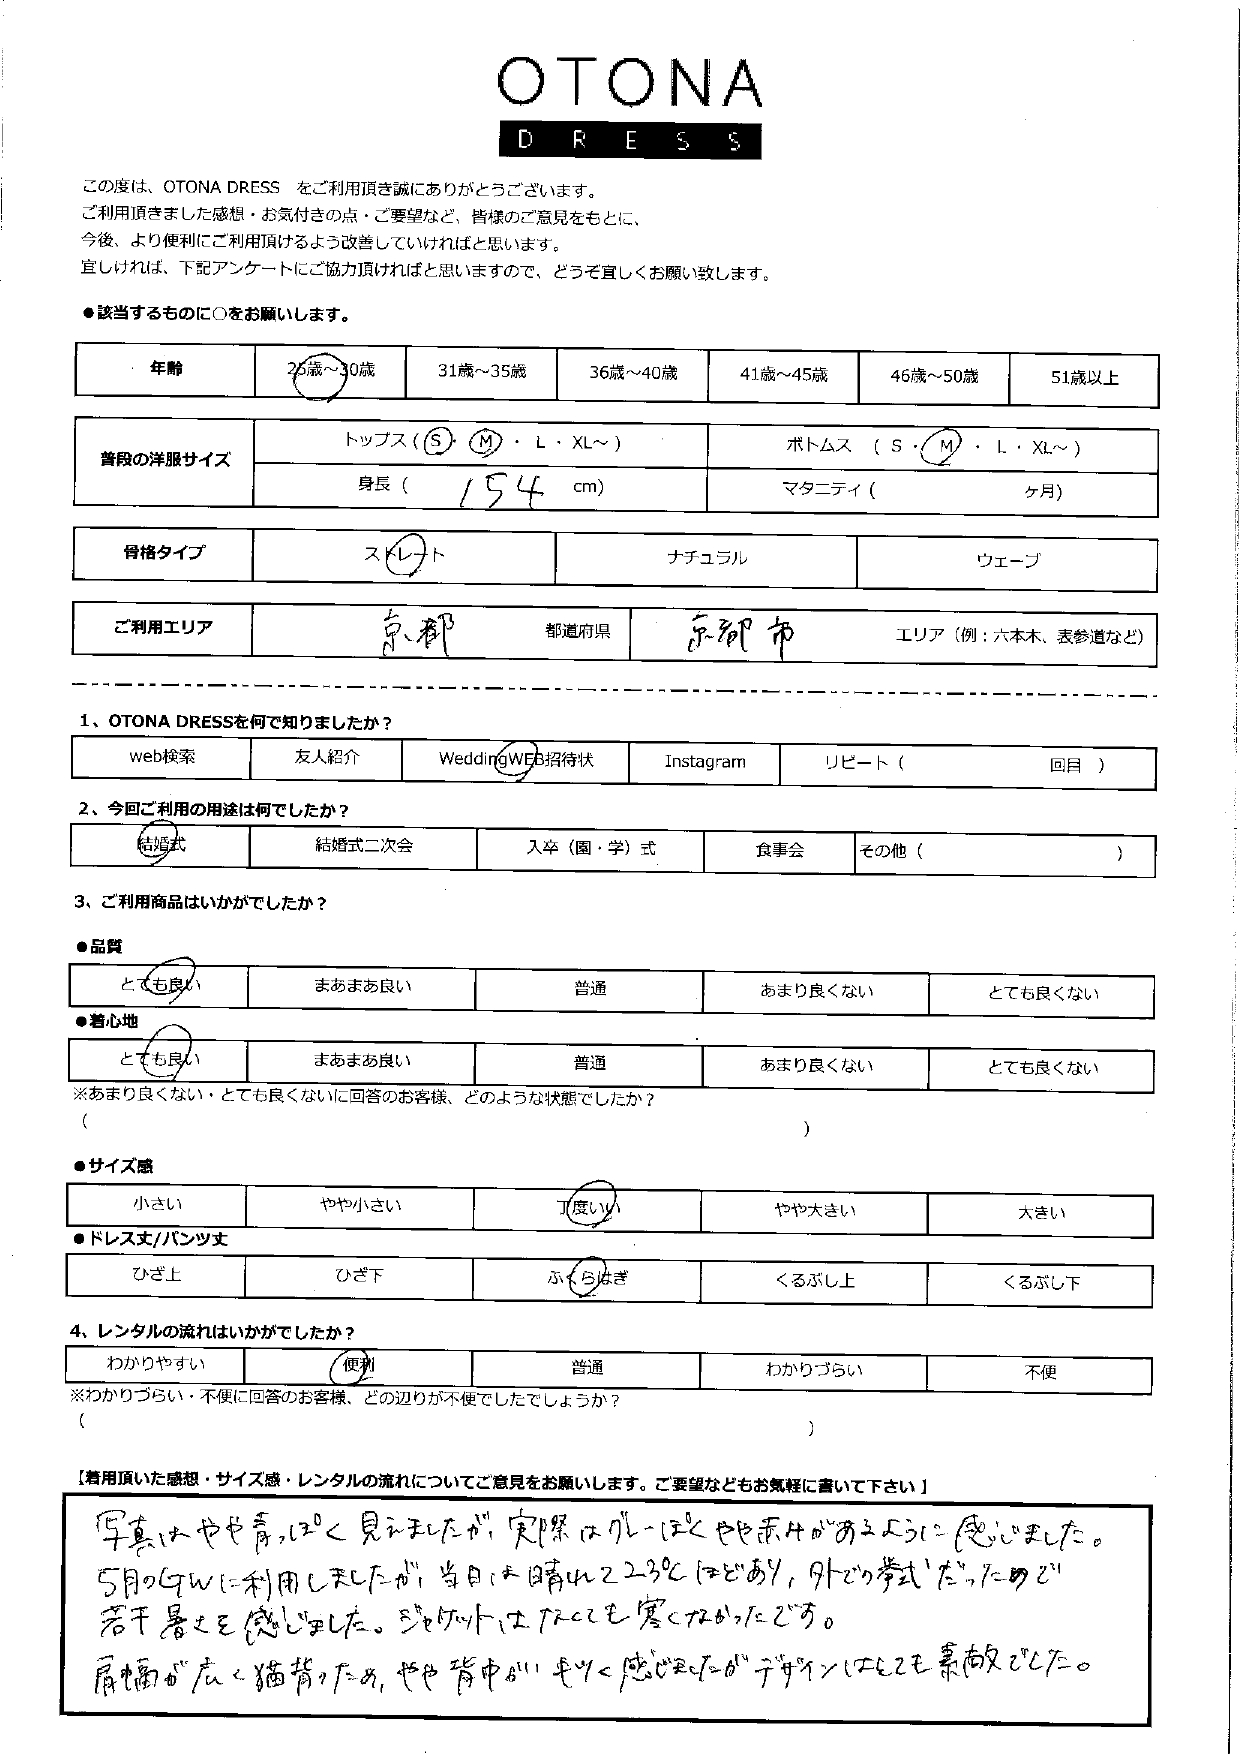 OTONA
DRESS
この度は、OTONA DRESS をご利用頂き誠にありがとうございます。
ご利用頂きました感想・お気付きの点・ご要望など、皆様のご意見をもとに、
今後、より便利にご利用頂けるよう改善していければと思います。
宜しければ、下記アンケートにご協力頂ければと思いますので、どうぞ宜しくお願い致します。
●該当するものに○をお願いします。
年齢 26歳～30歳 31歳～35歳 36歳～40歳 41歳～45歳 46歳～50歳 51歳以上
普段の洋服サイズ トップス ( S・ M ・ L ・ XL～ ) ボトムス ( S ・ M ・ L ・ XL～ )
身長 ( 154 cm) マタニティ ( ヶ月)
骨格タイプ ストレート ナチュラル ウェーブ
ご利用エリア 京都 都道府県 京都市 エリア（例：六本木、表参道など）
1、OTONA DRESSを何で知りましたか？
web検索 友人紹介 WeddingWEB招待状 Instagram リピート ( 回目 )
2、今回ご利用の用途は何でしたか？
結婚式 結婚式二次会 入卒（園・学）式 食事会 その他 ( )
3、ご利用商品はいかがでしたか？
●品質
とても良い まあまあ良い 普通 あまり良くない とても良くない
●着心地
とても良い まあまあ良い 普通 あまり良くない とても良くない
※あまり良くない・とても良くないに回答のお客様、どのような状態でしたか？
( )
●サイズ感
小さい やや小さい 丁度いい やや大きい 大きい
●ドレス丈/パンツ丈
ひざ上 ひざ下 ふくらはぎ くるぶし上 くるぶし下
4、レンタルの流れはいかがでしたか？
わかりやすい 便利 普通 わかりづらい 不便
※わかりづらい・不便に回答のお客様、どの辺りが不便でしたでしょうか？
( )
【着用頂いた感想・サイズ感・レンタルの流れについてご意見をお願いします。ご要望などもお気軽に書いて下さい】
写真はやや青っぽく見えましたが、実際はグレーぽくやや赤みがあるように感じました。
5月のGWに利用しましたが、当日は晴れて23℃ほどあり、外での挙式だったので
若干暑さを感じました。ジャケットはなくても寒くなかったです。
肩幅が広く猫背のため、やや背中がキツく感じましたがデザインはとても素敵でした。